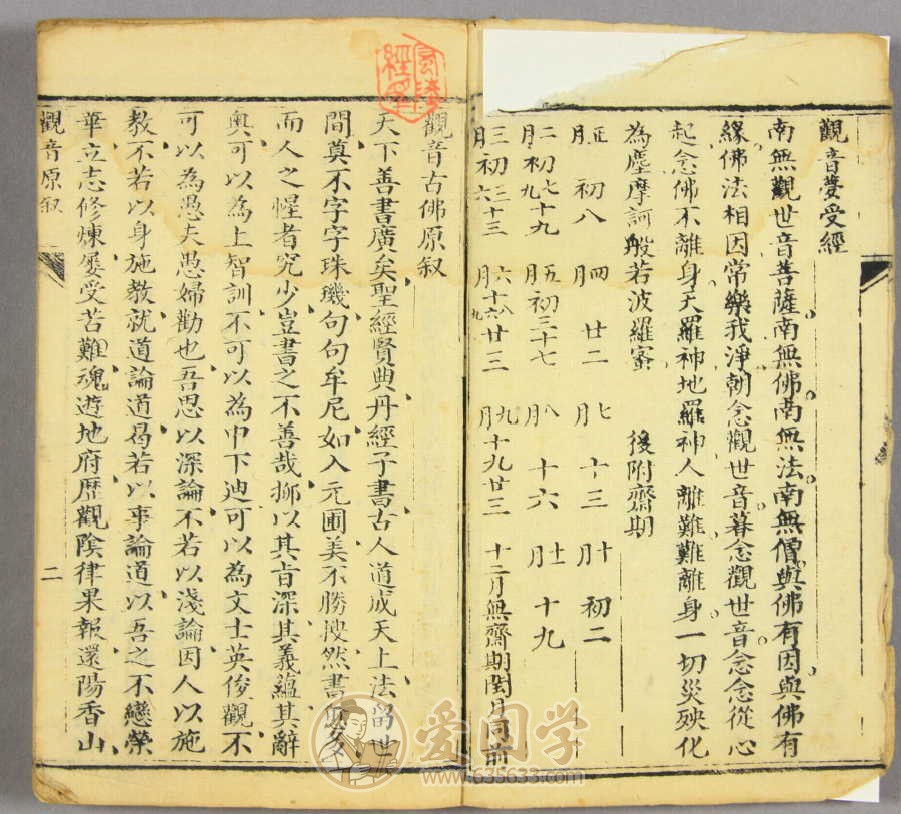 觀音夢受經
南無觀世音菩薩南無佛南無法南無僧與佛有因與佛有
緣佛法相因常樂我淨朝念觀世音暮念觀世音念念從心
起念佛不離身天羅神地羅神人離難難離身一切災殃化
為塵摩訶般若波羅蜜 後附齋期
正月 初八 四月 廿二 七月 十三 十月 初二
二月 初七九十九 五月 初三十七 八月 十六 十一月 十九
三月 初三六十三 六月 十六八九廿三 九月 十九廿三 十二月無齋期閏月同前
觀音古佛原叙
天下善書廣矣聖經賢典丹經子書古人道成天上法留世
間莫不字字珠璣句句牟尼如入元圃美不勝搜然書愈多
而人之惺者究少豈書之不善哉抑以其旨深其義蘊其辭
奧可以為上智訓不可以為中下迪可以為文士英俊觀不
可以為愚夫愚婦勸也吾思以深論不若以淺論因人以施
教不若以身施教就道論道曷若以事論道以吾之不戀榮
華立志修煉屡受苦難魂遊地府歷觀陰律果報還陽香山
觀音原叙 二
爱同学
www.635633.com